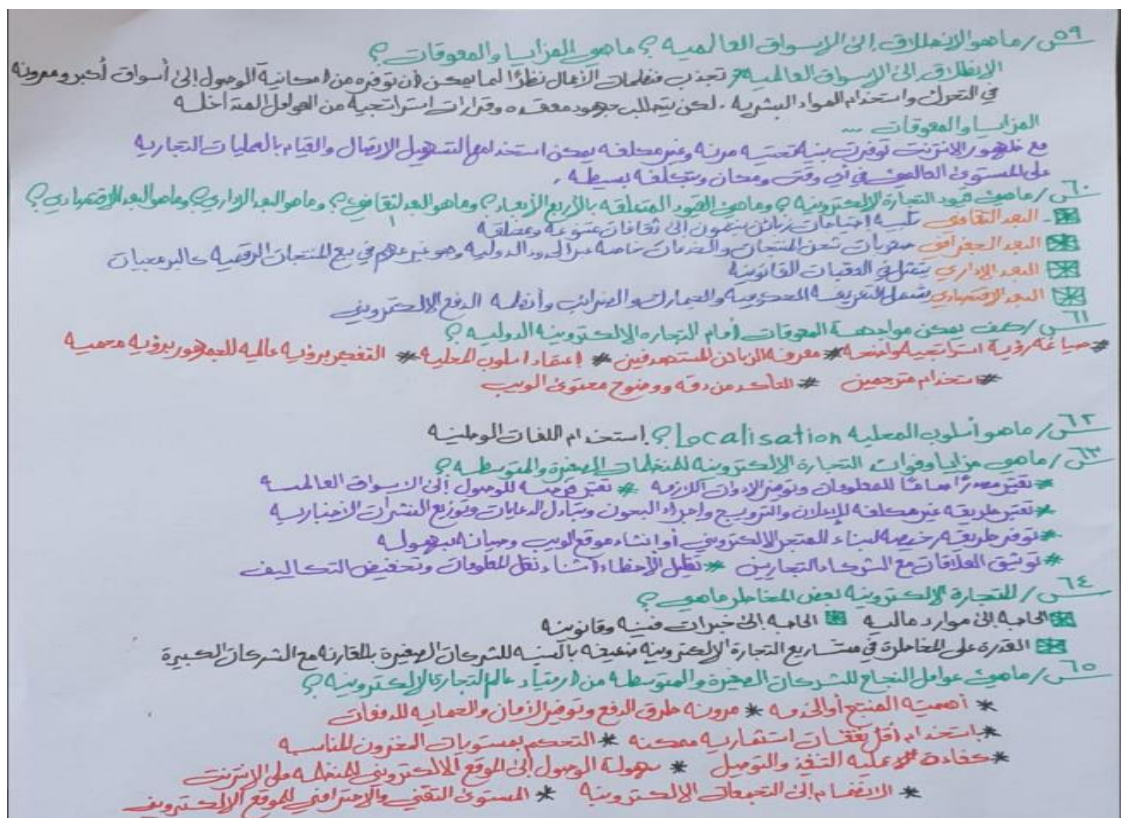 س٥٩/ ماهو الانطلاق إلى الاسواق العالمية؟ ماهي المزايا والمعوقات؟
الانطلاق إلى الاسواق العالمية: تجذب منظمات الأعمال نظرًا لما يمكن أن توفره من امكانية الوصول إلى أسواق أكبر ومرونة
في التحرك واستخدام الموارد البشرية. لكن يتطلب جهود معقده وقرارات استراتجية من العوامل المتداخلة
المزايا والمعوقات ...
مع ظهور الانترنت توفرت بنية تحتية مرنة وغير مكلفة يمكن استخدامها لتسهيل الاتصال والقيام بالعمليات التجارية
على المستوى العالمي في أي وقت ومكان وبتكلفة بسيطة.
س٦٠/ ماهي قيود التجارة الإلكترونية؟ وماهي القيود المتعلقة بالأربع الأبعاد؟ وماهو البعد الثقافي؟ وماهو البعد الإداري؟ وماهو البعد الاقتصادي؟
البعد الثقافي تلبية إحتياجات زبائن ينتمون إلى ثقافات متنوعة ومختلفة
البعد الجغرافي صعوبات شحن المنتجات والخدمات خاصة عبر الحدود الدولية وهو غير مهم في بيع المنتجات الرقمية كالبرمجيات
البعد الإداري يتمثل في العقبات القانونية
البعد الاقتصادي يشمل التعريفة الحكومية والجمارك والضرائب وأنظمة الدفع الإلكتروني
س٦١/ كيف يمكن مواجهة المعوقات أمام التجاره الالكترونية الدولية؟
* صياغة رؤية استراتجية واضحة * معرفة الزبائن المستهدفين * إعتماد اسلوب المحلية * التفكير برؤية عالمية للجمهور برؤية محلية
* استخدام مترجمين * التأكد من دقة ووضوح محتوى الويب
س٦٢/ ماهو أسلوب المحلية Localisation؟ إستخدام اللغات الوطنية
س٦٣/ ماهي مزايا وفوائد التجارة الإلكترونية للمنظمات الصغيرة والمتوسطة؟
* تعتبر مصدرًا هامًا للمعلومات وتوفير الادوات اللازمة * تعتبر فرصة للوصول إلى الاسواق العالمية
* تعتبر طريقة غير مكلفة للإعلان والترويج واجراء البحوث وتبادل الدعايات وتوزيع النشرات الأخبارية
* توفر طريقة رخيصة لبناء المتجر الالكتروني أو انشاء موقع الويب وصيانته بسهولة
* توثيق العلاقات مع الشركاء التجارين * تقليل الأخطاء أثناء نقل المعلومات وتخفيض التكاليف
س٦٤/ للتجارة الإلكترونية بعض المخاطر ماهي؟
الحاجة إلى موارد مالية الحاجة إلى خبرات فنية وقانونية
القدرة على المخاطرة في مشاريع التجارة الإلكترونية ضعيفة بالنسبة للشركات الصغيرة بالمقارنة مع الشركات الكبيرة
س٦٥/ ماهي عوامل النجاح للشركات الصغيرة والمتوسطة من ارتياد عالم التجارة الإلكترونية؟
* أهمية المنتج أو الخدمة * مرونة طرق الدفع وتوفير الأمان والحماية للدفعات
* باستخدام أقل نفقات استثمارية ممكنة * التحكم بمستويات المخزون المناسبة
* كفاءة عملية التنفيذ والتوصيل * سهولة الوصول إلى الموقع الالكتروني للمنظمة على الإنترنت
* الانضمام إلى التجمعات الإلكترونية * المستوى التقني والاحترافي للموقع الإلكتروني